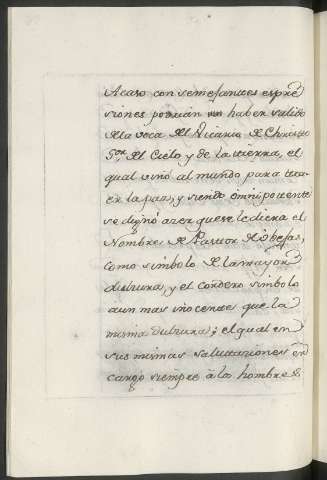 Acaso con semejantes espre
siones podrian haber salido
de la voca del Vicario de Christo
Sor. del Cielo, y de la tierra, el
qual vino al mundo para tra-
er la paz, y siendo omnipotente
se dignó azer que se le diera el
Nombre de Pastor de obejas,
como simbolo de la mayor
dulzura, y el cordero simbolo
aun mas ynocente que la
misma dulzura; el qual en
sus mismas salutaciones en
cargó siempre á los hombres